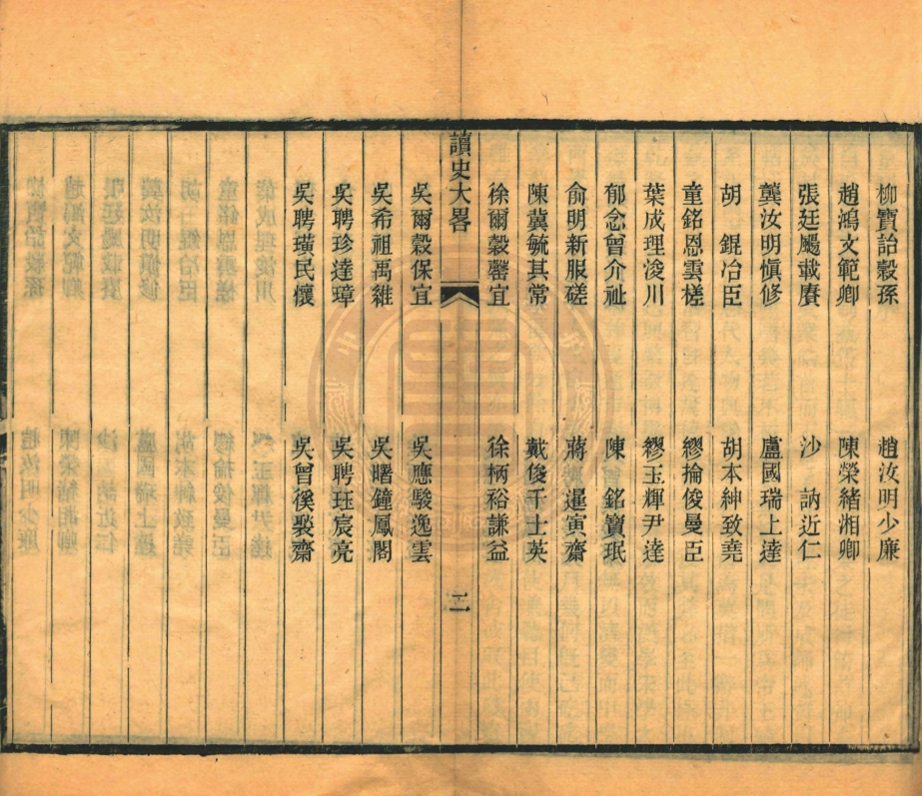 柳寶詒穀孫　趙汝明少廉
趙鴻文範卿　陳榮緒湘卿
張廷颺載賡　沙　訥近仁
龔汝明愼修　盧國瑞上達
胡　錕冶臣　胡本紳致堯
童銘恩雲槎　繆掄俊曼臣
葉成理浚川　繆玉輝尹達
郁念曾介祉　陳　銘寶珉
俞明新服磋　蔣　暹寅齋
陳冀毓其常　戴俊千士英
徐爾穀罄宜　徐柄裕謙益
讀史大畧　二
吳爾穀保宜　吳應駿逸雲
吳希祖禹維　吳曙鐘鳳閣
吳聘珍達璋　吳聘珏宸亮
吳聘璜民懷　吳曾徯褧齋